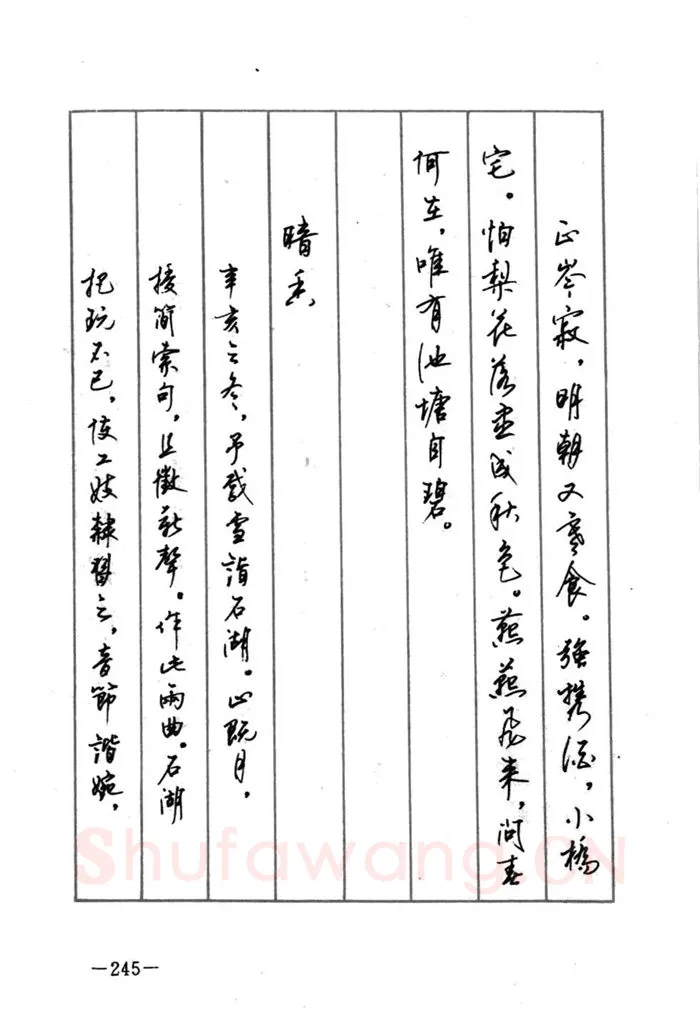 正岑寂，明朝又寒食。强携酒，小橋
宅。怕梨花落盡成秋色。燕燕飛来，问春
何在，唯有池塘自碧。
暗香
辛亥之冬，予载雪詣石湖。止既月，
授简索句，且徵新聲。作此兩曲。石湖
把玩不已，使工妓隸習之，音節諧婉，
Shufawang.CN
—245—